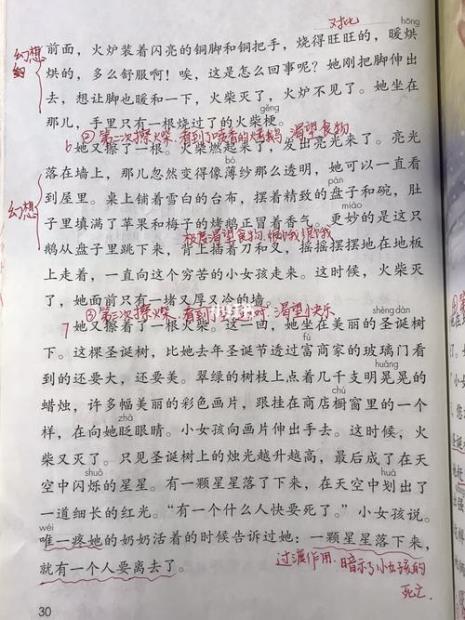 对比
hōng
幻想
前面，火炉装着闪亮的铜脚和铜把手，烧得旺旺的，暖烘
烘的，多么舒服啊！唉，这是怎么回事呢？她刚把脚伸出
去，想让脚也暖和一下，火柴灭了，火炉不见了。她坐在
那儿，手里只有一根烧过了的火柴梗。
gěng
②第二次擦火柴，看到了喷香的烤鹅 渴望食物
6 她又擦了一根。火柴燃起来了，发出亮光来了。亮光
bó
落在墙上，那儿忽然变得像薄纱那么透明，她可以一直看
幻想
到屋里。桌上铺着雪白的台布，摆着精致的盘子和碗，肚
子里填满了苹果和梅子的烤鹅正冒着香气。更妙的是这只
miào
极度渴望食物
鹅从盘子里跳下来，背上插着刀和叉，摇摇摆摆地在地板
上走着，一直向这个穷苦的小女孩走来。这时候，火柴灭
了，她面前只有一堵又厚又冷的墙。
③第三次擦火柴，看到 渴望快乐
shèng dàn
7 她又擦着了一根火柴。这一回，她坐在美丽的圣诞树
下。这棵圣诞树，比她去年圣诞节透过富商家的玻璃门看
fù
到的还要大，还要美。翠绿的树枝上点着几千支明晃晃的
huǎng
蜡烛，许多幅美丽的彩色画片，跟挂在商店橱窗里的一个
chú
样，在向她眨眼睛。小女孩向画片伸出手去。这时候，火
zhǎ
柴又灭了。只见圣诞树上的烛光越升越高，最后成了在天
shuò
空中闪烁的星星。有一颗星星落了下来，在天空中划出了
huá
一道细长的红光。“有一个什么人快要死了。”小女孩说。
wéi
唯一疼她的奶奶活着的时候告诉过她：一颗星星落下来，
就有一个人要离去了。
过渡作用，暗示了小女孩的
死亡
30